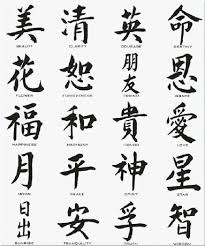 美 清 英 命
BEAUTY CLARITY COURAGE DESTINY
花 恕 朋友 恩
FLOWER FORGIVENESS FRIENDSHIP GRACE
福 和 貴 愛
HAPPINESS HARMONY HONOR LOVE
月 平 神 星
MOON PEACE SPIRIT STAR
日出 安 孚 智
SUNRISE TRANQUILITY TRUTH WISDOM